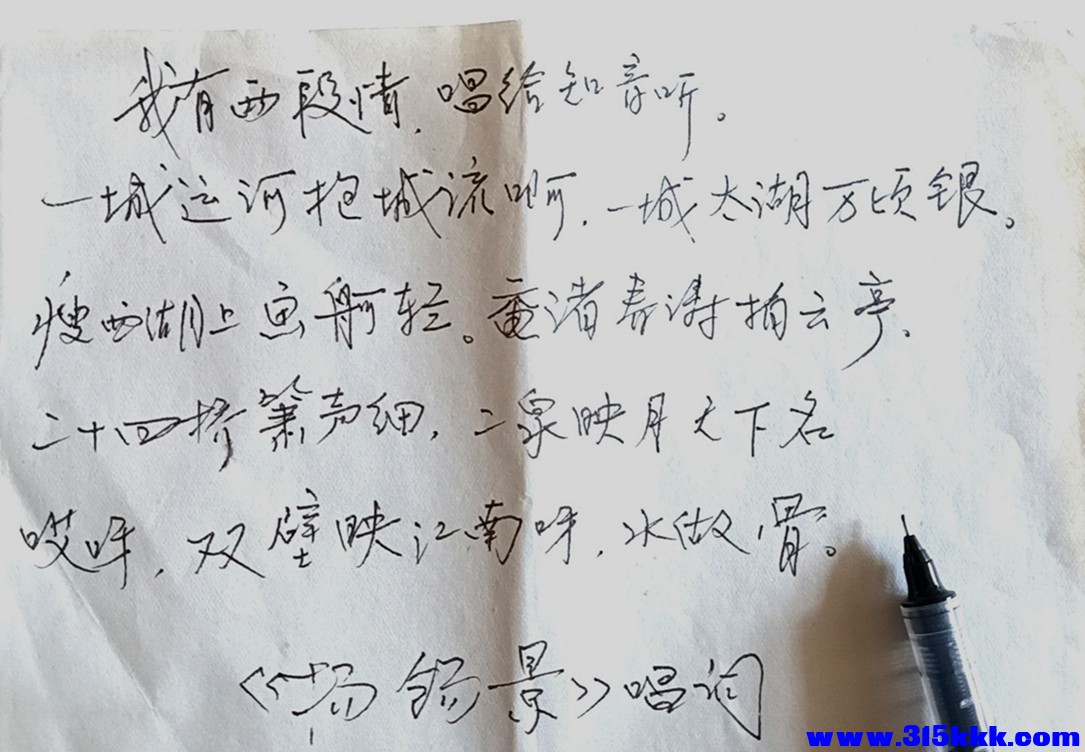 我有两段情，唱给知音听。
一城运河抱城流啊，一城太湖万顷银。
瘦西湖上画舫轻。鼋渚春涛拍云亭、
二十四桥箫声细，二泉映月天下名
哎呀，双璧映江南呀，水做骨。
《扬锡景》唱词
www.315kkk.com